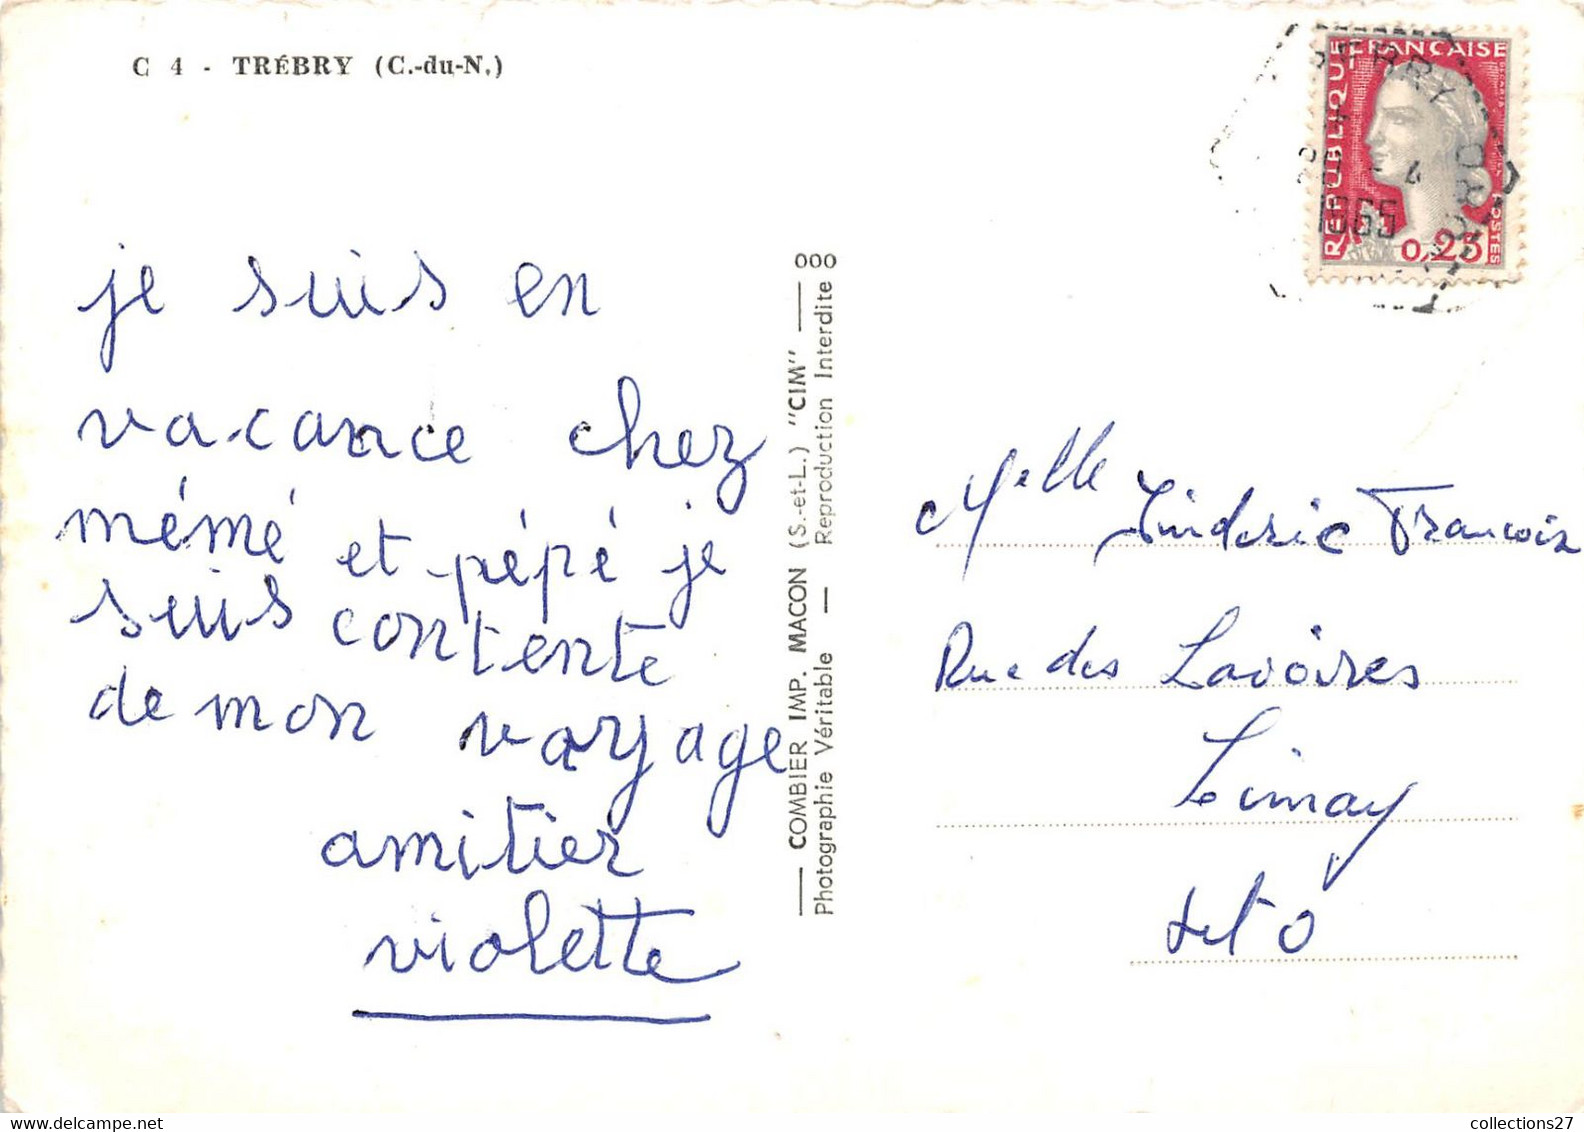 C 4 - TRÉBRY (C.-du-N.)
je suis en
vacance chez
mémé et pépé je
suis contente
de mon voyage
amitier
violette
COMBIER IMP. MACON (S.-et-L.) "CIM"
Photographie Véritable — Reproduction Interdite
000
RÉPUBLIQUE FRANÇAISE
POSTES
0,25
1965
Melle Francoise
Rue des Lavoires
Limay
S et O
collections27